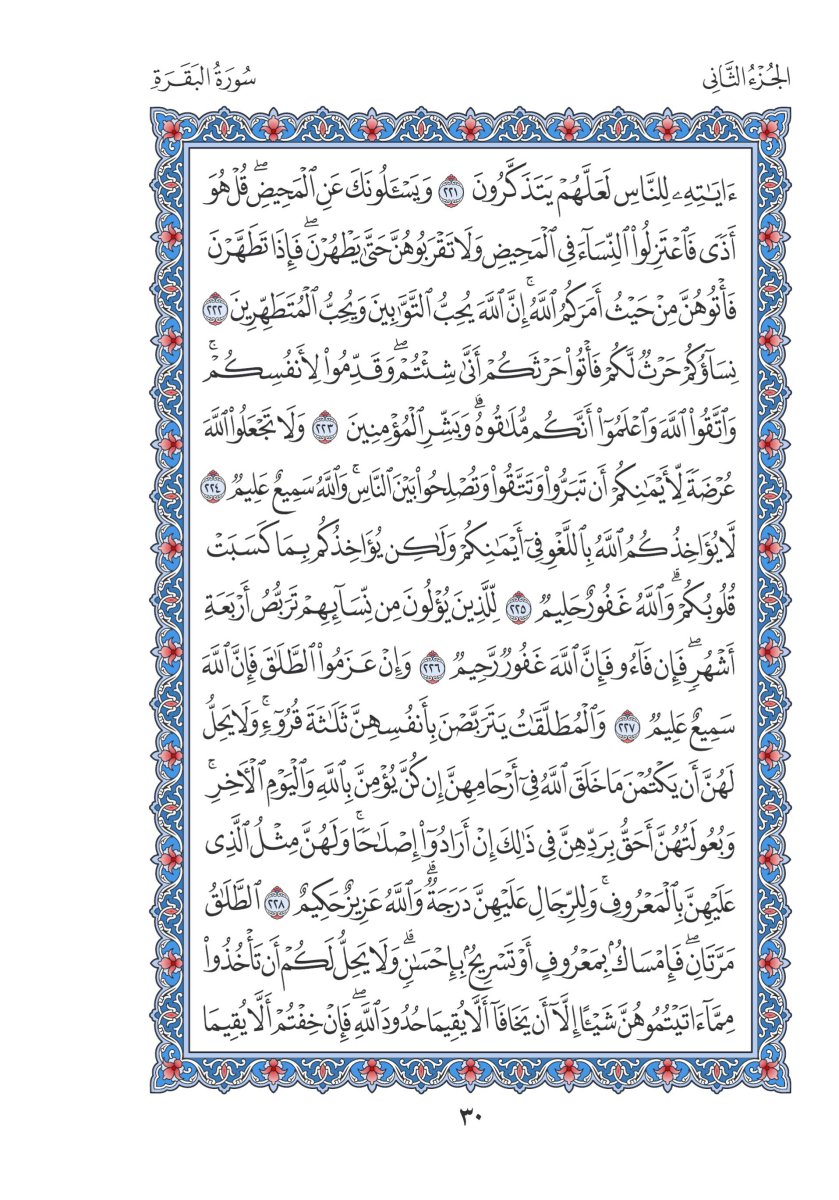 الجُزْءُ الثَّانِى
سُورَةُ البَقَرَةِ
ءَايَٰتِهِۦ لِلنَّاسِ لَعَلَّهُمْ يَتَذَكَّرُونَ ٢٢١ وَيَسْـَٔلُونَكَ عَنِ ٱلْمَحِيضِۖ قُلْ هُوَ
أَذٗى فَٱعْتَزِلُوا۟ ٱلنِّسَآءَ فِى ٱلْمَحِيضِ وَلَا تَقْرَبُوهُنَّ حَتَّىٰ يَطْهُرْنَۖ فَإِذَا تَطَهَّرْنَ
فَأْتُوهُنَّ مِنْ حَيْثُ أَمَرَكُمُ ٱللَّهُۚ إِنَّ ٱللَّهَ يُحِبُّ ٱلتَّوَّٰبِينَ وَيُحِبُّ ٱلْمُتَطَهِّرِينَ ٢٢٢
نِسَآؤُكُمْ حَرْثٞ لَّكُمْ فَأْتُوا۟ حَرْثَكُمْ أَنَّىٰ شِئْتُمْۖ وَقَدِّمُوا۟ لِأَنفُسِكُمْۚ
وَٱتَّقُوا۟ ٱللَّهَ وَٱعْلَمُوٓا۟ أَنَّكُم مُّلَٰقُوهُۗ وَبَشِّرِ ٱلْمُؤْمِنِينَ ٢٢٣ وَلَا تَجْعَلُوا۟ ٱللَّهَ
عُرْضَةٗ لِّأَيْمَٰنِكُمْ أَن تَبَرُّوا۟ وَتَتَّقُوا۟ وَتُصْلِحُوا۟ بَيْنَ ٱلنَّاسِۚ وَٱللَّهُ سَمِيعٌ عَلِيمٞ ٢٢٤
لَّا يُؤَاخِذُكُمُ ٱللَّهُ بِٱللَّغْوِ فِىٓ أَيْمَٰنِكُمْ وَلَٰكِن يُؤَاخِذُكُم بِمَا كَسَبَتْ
قُلُوبُكُمْۗ وَٱللَّهُ غَفُورٌ حَلِيمٞ ٢٢٥ لِّلَّذِينَ يُؤْلُونَ مِن نِّسَآئِهِمْ تَرَبُّصُ أَرْبَعَةِ
أَشْهُرٖۖ فَإِن فَآءُو فَإِنَّ ٱللَّهَ غَفُورٞ رَّحِيمٞ ٢٢٦ وَإِنْ عَزَمُوا۟ ٱلطَّلَٰقَ فَإِنَّ ٱللَّهَ
سَمِيعٌ عَلِيمٞ ٢٢٧ وَٱلْمُطَلَّقَٰتُ يَتَرَبَّصْنَ بِأَنفُسِهِنَّ ثَلَٰثَةَ قُرُوٓءٖۚ وَلَا يَحِلُّ
لَهُنَّ أَن يَكْتُمْنَ مَا خَلَقَ ٱللَّهُ فِىٓ أَرْحَامِهِنَّ إِن كُنَّ يُؤْمِنَّ بِٱللَّهِ وَٱلْيَوْمِ ٱلْأَخِرِۚ
وَبُعُولَتُهُنَّ أَحَقُّ بِرَدِّهِنَّ فِى ذَٰلِكَ إِنْ أَرَادُوٓا۟ إِصْلَٰحٗاۚ وَلَهُنَّ مِثْلُ ٱلَّذِى
عَلَيْهِنَّ بِٱلْمَعْرُوفِۚ وَلِلرِّجَالِ عَلَيْهِنَّ دَرَجَةٞۗ وَٱللَّهُ عَزِيزٌ حَكِيمٌ ٢٢٨ ٱلطَّلَٰقُ
مَرَّتَانِۖ فَإِمْسَاكُۢ بِمَعْرُوفٍ أَوْ تَسْرِيحُۢ بِإِحْسَٰنٖۗ وَلَا يَحِلُّ لَكُمْ أَن تَأْخُذُوا۟
مِمَّآ ءَاتَيْتُمُوهُنَّ شَيْـًٔا إِلَّآ أَن يَخَافَآ أَلَّا يُقِيمَا حُدُودَ ٱللَّهِۖ فَإِنْ خِفْتُمْ أَلَّا يُقِيمَا
٣٠